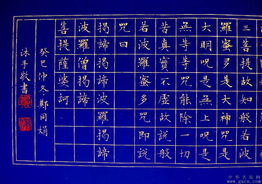 三菩提故知般若波
羅蜜多是大神咒是
大明咒是無上咒是
無等等咒能除一切
苦真實不虛故說般
若波羅蜜多咒即說
咒曰
揭諦揭諦波羅揭諦
波羅僧揭諦
菩提薩婆訶
癸巳仲冬鄭同娟
沐手敬書